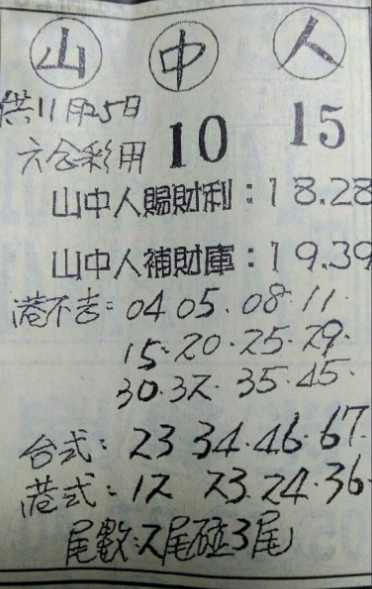 山 中 人
供11月25日
六合彩用 10 15
山中人賜財利:18.28
山中人補財庫:19.39
港不吉:04 05.08.11.
15.20.25.29.
30.32.35.45.
台式:23 34.46.67.
港式:12 23.24.36.
尾數:2尾碰3尾